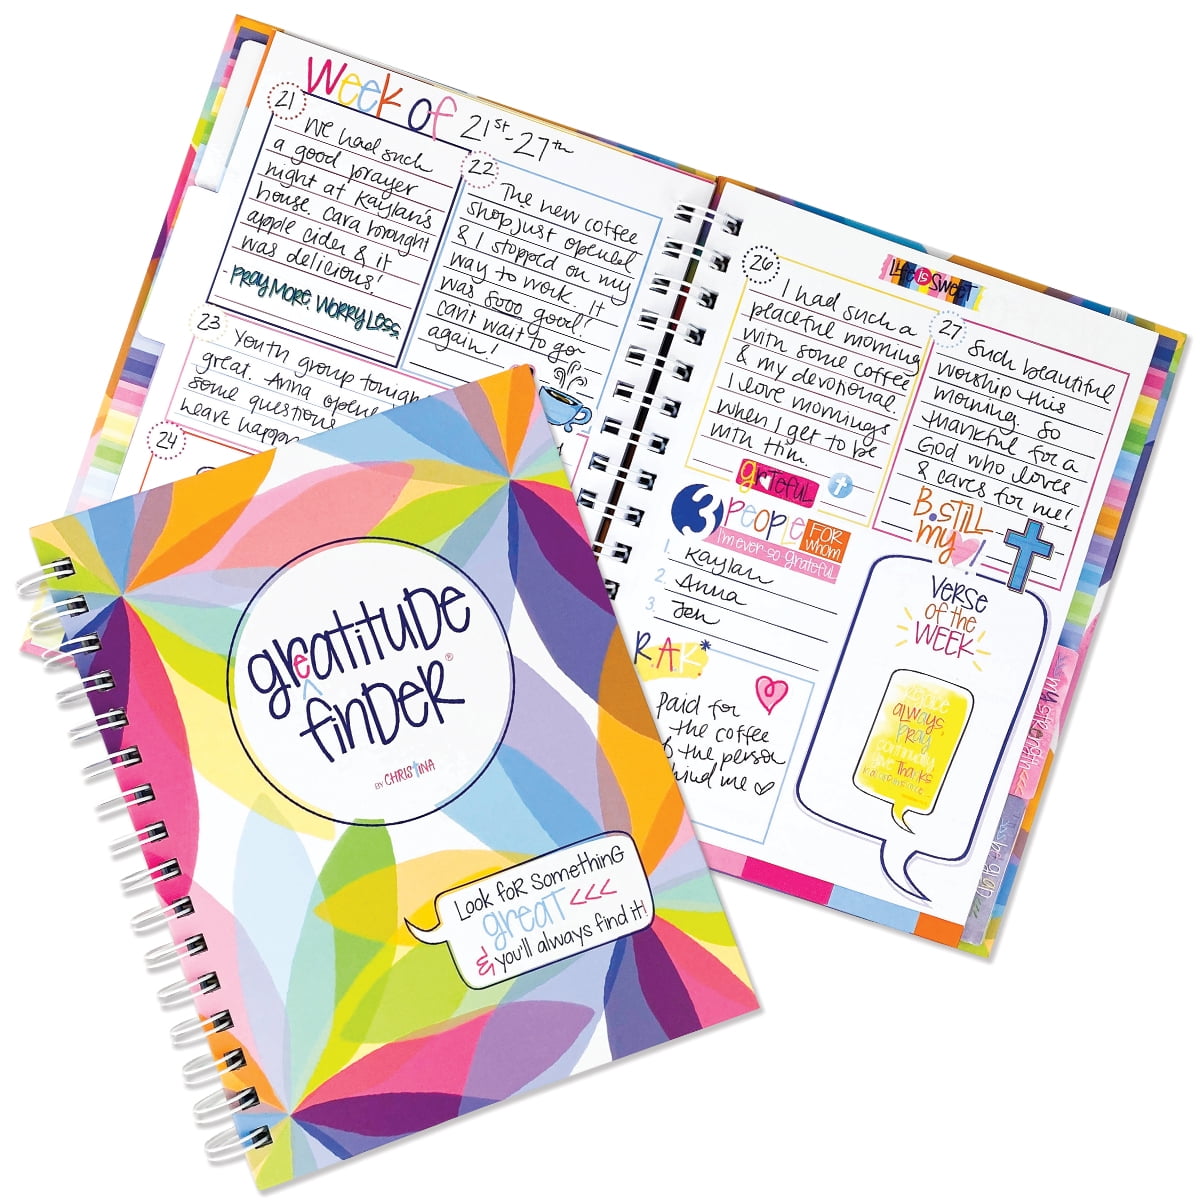 Week of 21st-27th
21
We had such
a good prayer
night at Kaylan's
house. Cara brought
apple cider & it
was delicious!
-PRAY MORE. WORRY LESS
22
The new coffee
shop just opened
& I stopped on my
way to work. It
was sooo good!
can't wait to go
again!
23
Youth group tonight
great. Anna opened
some questions
heart happ
24
26
I had such a
peaceful morning
with some coffee
& my devotional.
I love mornings
when I get to be
with Him.
grateful
Life is SWEET
27
Such beautiful
worship this
morning. So
thankful for a
God who loves
& cares for me!
B.STILL
my !
3 PEOPLE FOR whom
I'm ever-so grateful
1. Kaylan
2. Anna
3. Jen
R.A.K*
Paid for
the coffee
of the person
hind me
VERSE
OF the
WEEK
ALWAYS,
PRAY
continually
give THANKS
greatitude
finder®
BY CHRISTINA
Look for something
great <<<
& you'll always find it!